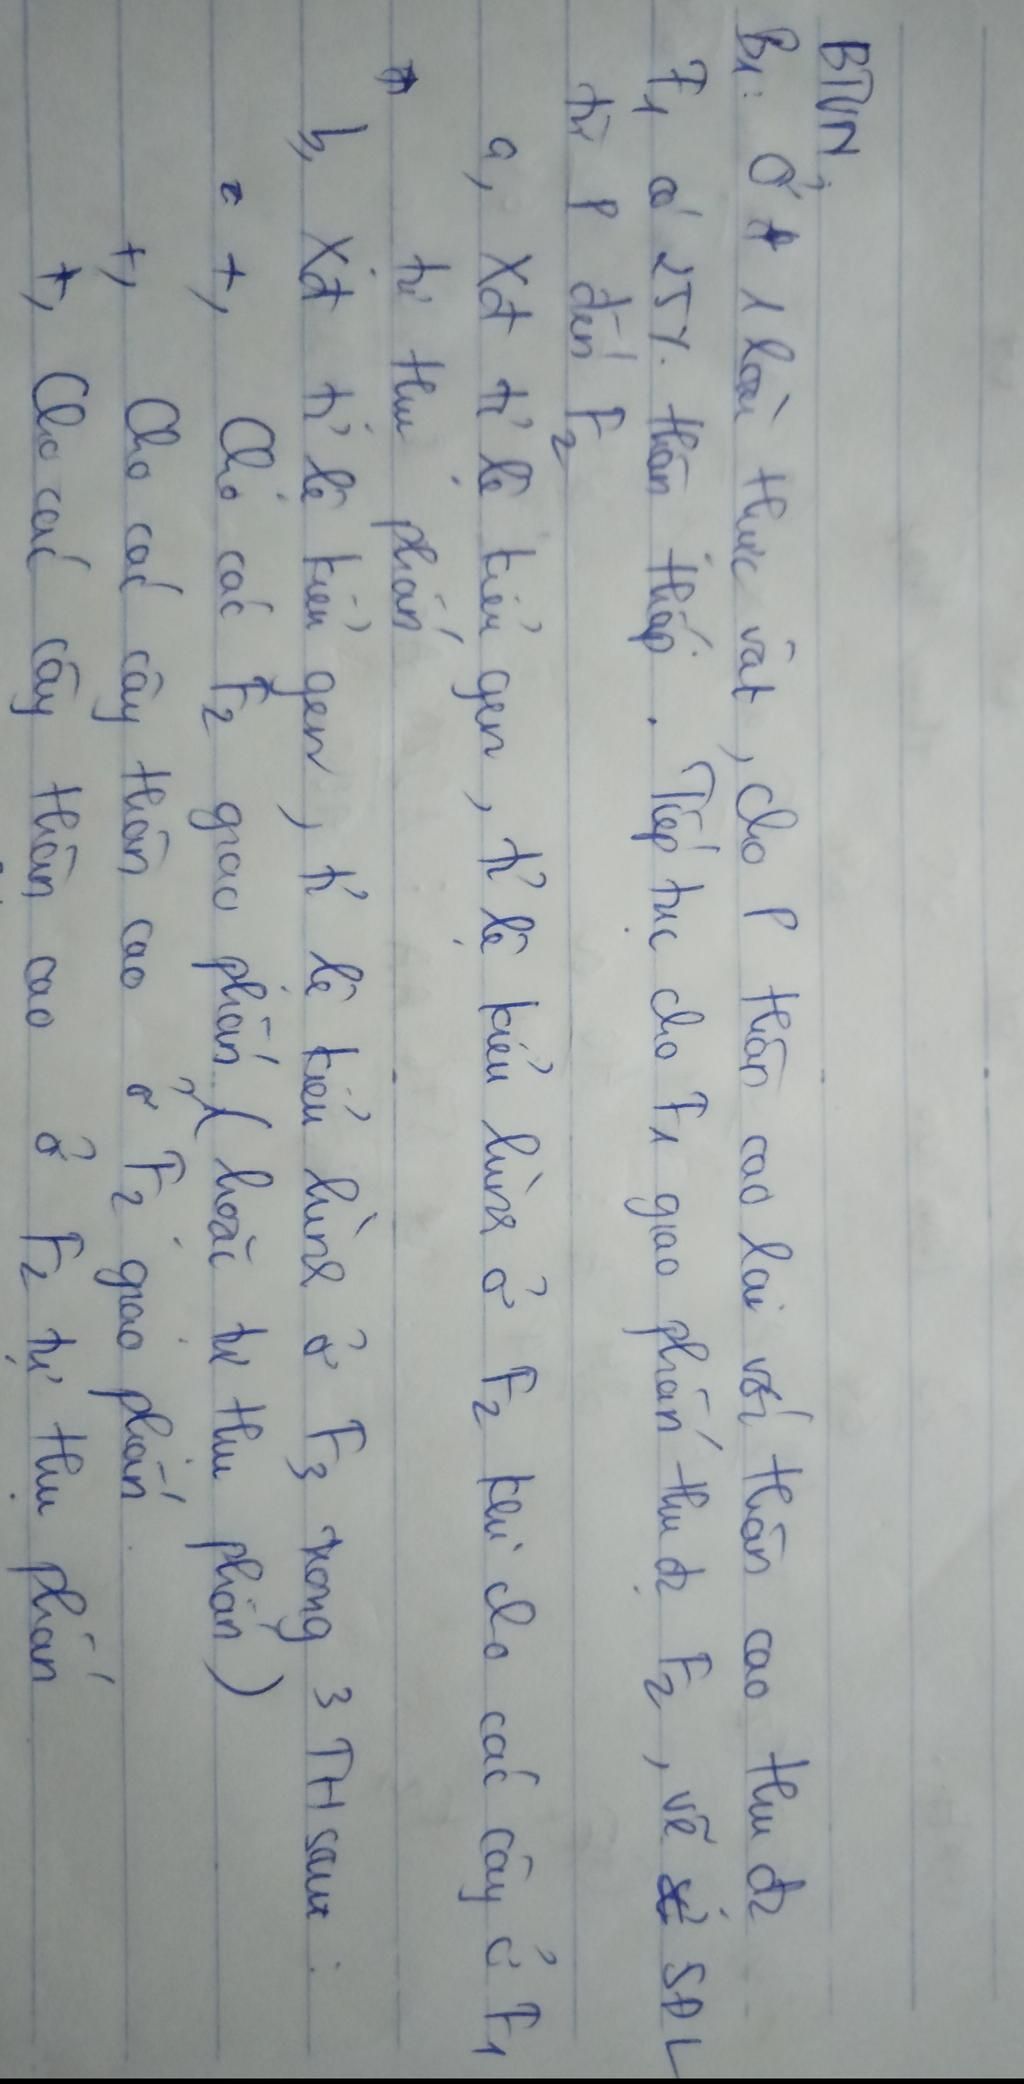 BTVN:
B1: Ở 1 loài thực vật, cho P thân cao lai với thân cao thu đc
F1 có 25% thân thấp. Tiếp tục cho F1 giao phấn thu đc F2, vẽ SĐL
từ P đến F2
a, Xđ tỉ lệ kiểu gen, tỉ lệ kiểu hình ở F2 khi cho các cây ở F1
tự thụ phấn
b, Xđ tỉ lệ kiểu gen, tỉ lệ kiểu hình ở F3 trong 3 TH sau:
+, Cho các F2 giao phấn (hoặc tự thụ phấn)
+, Cho các cây thân cao ở F2 giao phấn
+, Cho các cây thân cao ở F2 tự thụ phấn